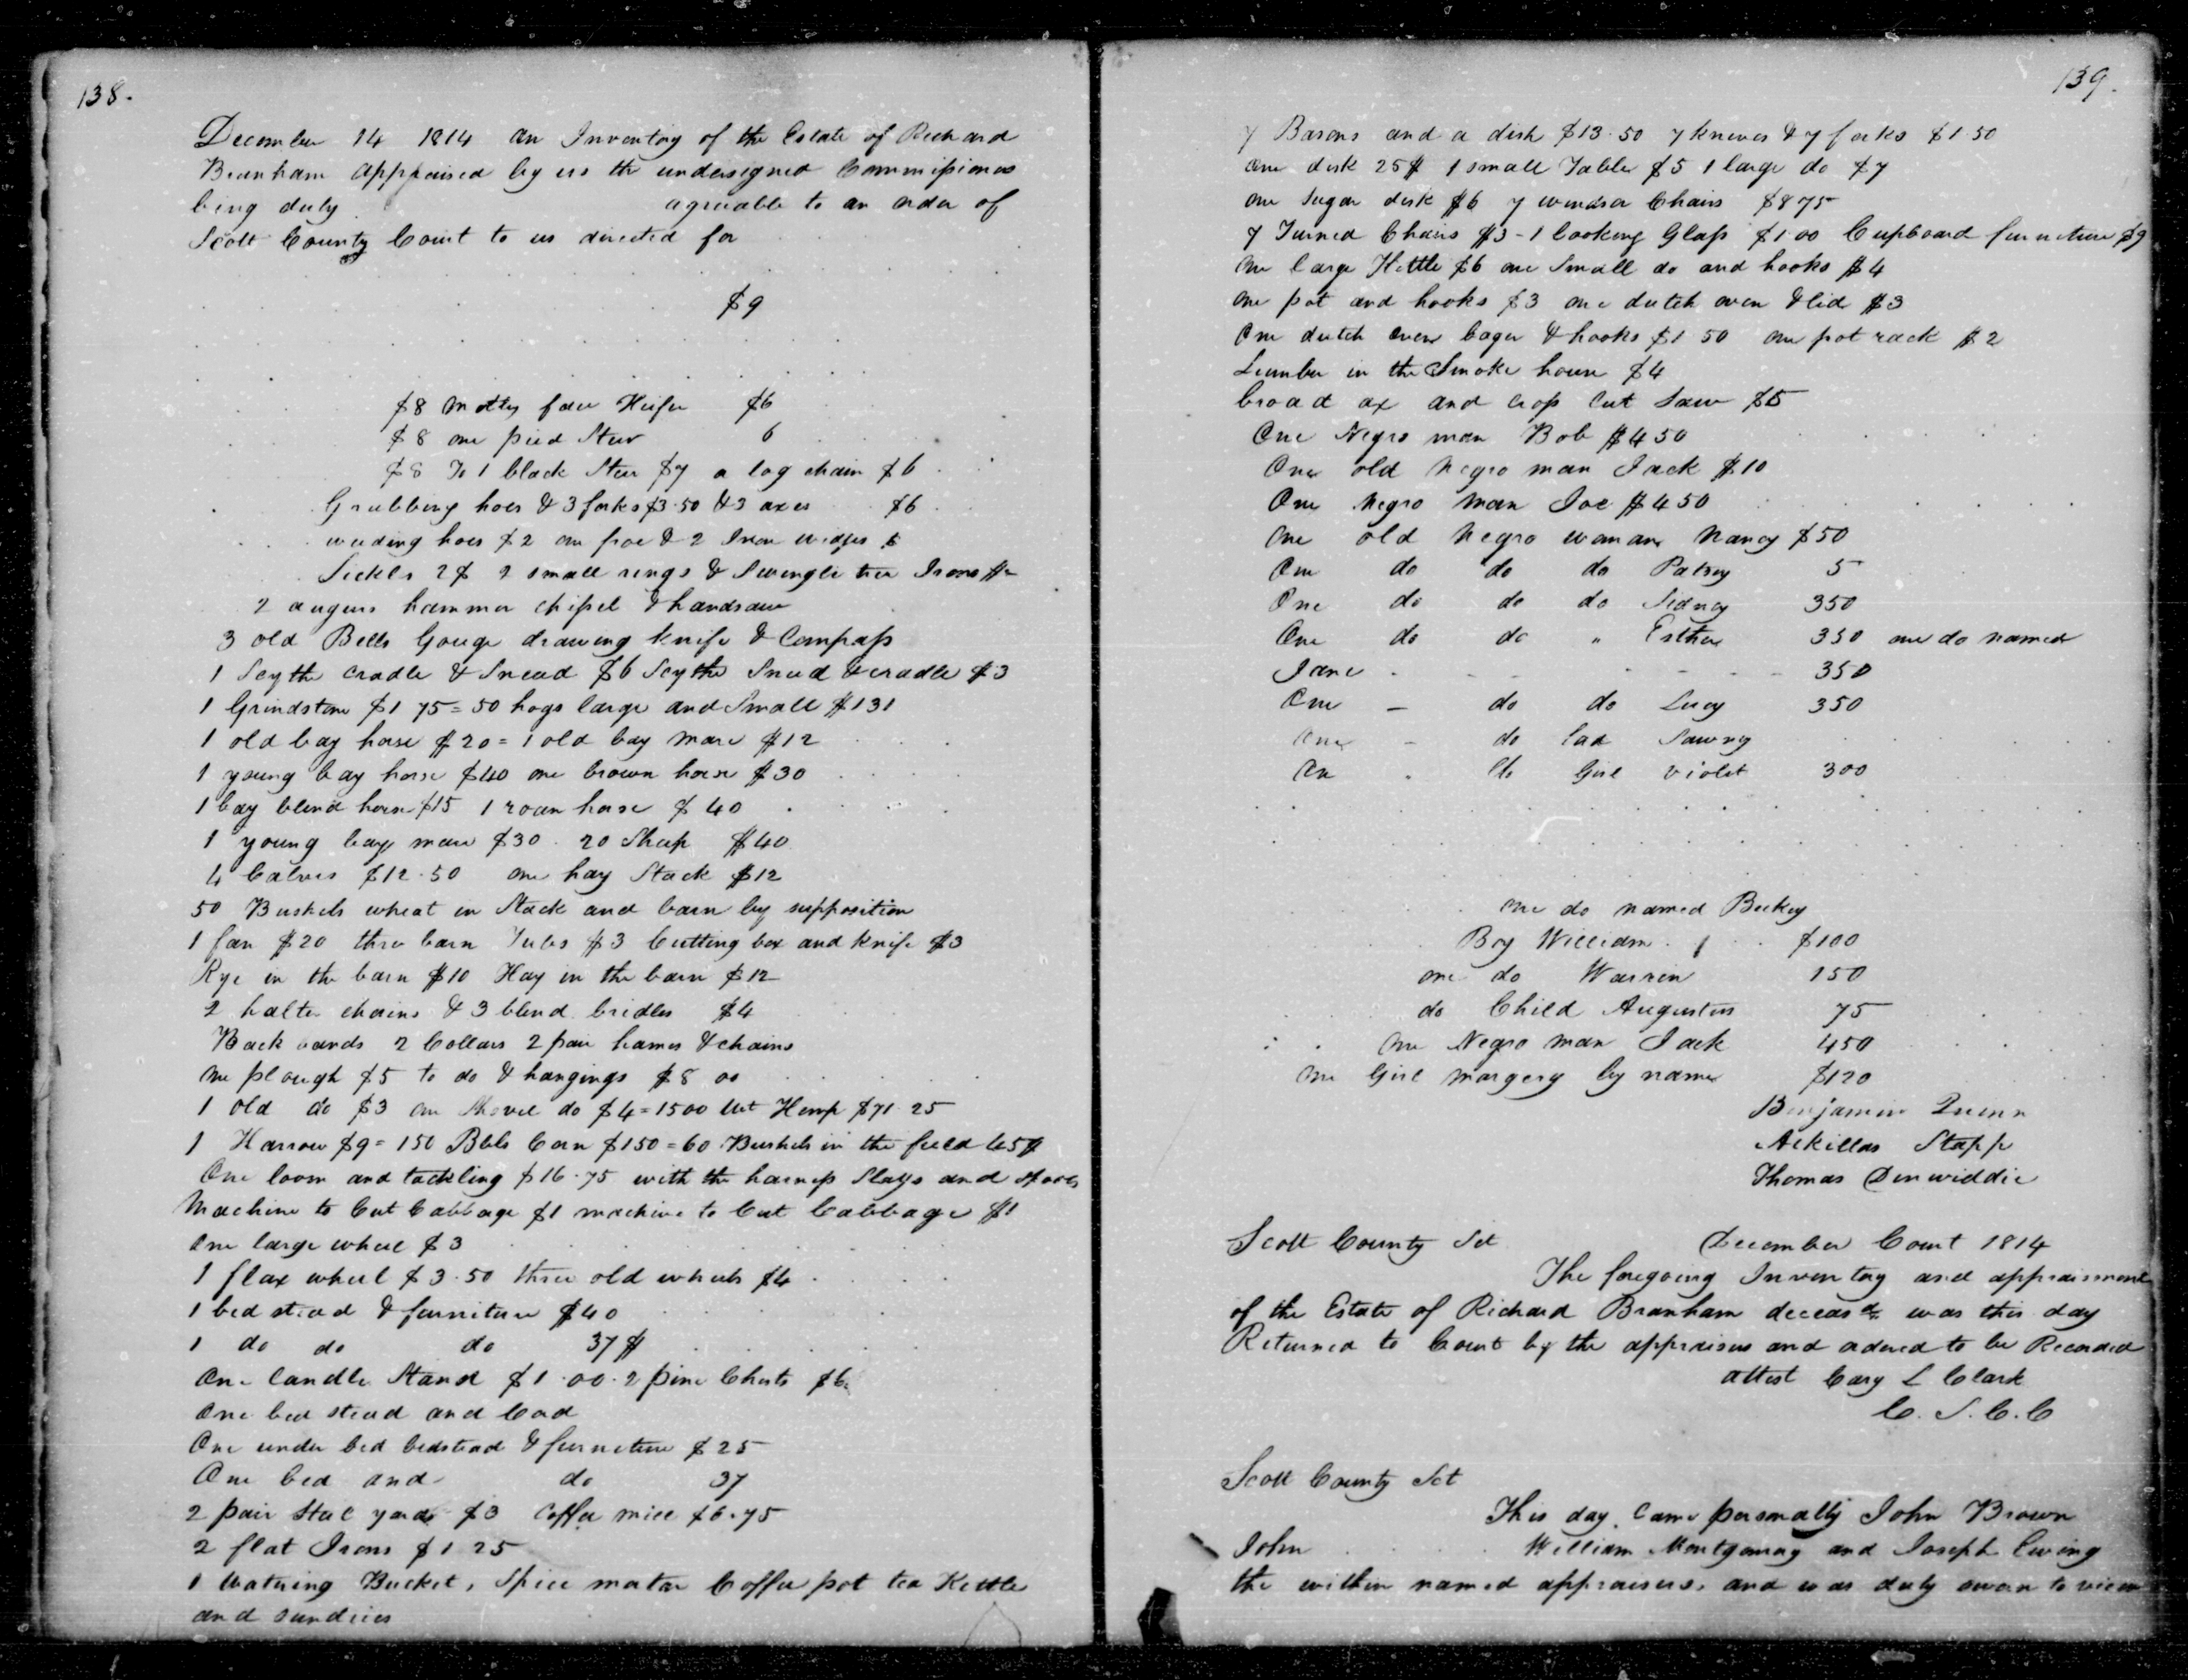 138.
December 14 1814 an Inventory of the Estate of Richard
Branham appraised by us the undersigned Commissioners
being duly agreeable to an order of
Scott County Court to us directed for
$9
$8 Motley face Heifer $6
$8 one pied Steer 6
$8 To 1 black Steer $7 a log chain $6
Grubbing hoes & 3 forks $3.50 & 3 axes $6
weeding hoes $2 one froe & 2 Iron wedges
Sickls 2$ 2 small rings & Swingle tree Irons
2 augurs hammer chissel & handsaw
3 old Bells Gouge drawing knife & Compass
1 Scythe cradle & Snead $6 Scythe Snead & cradle $3
1 Grindstone $1 75 = 50 hogs large and Small $131
1 old bay horse $20 = 1 old bay mare $12
1 young bay horse $40 one brown horse $30
1 bay blind horse $15 1 roan horse $40
1 young bay mare $30. 20 Sheep $40
4 Calves $12.50 one hay Stack $12
50 Bushels wheat in Stack and barn by supposition
1 fan $20 three barn Tubs $3 Cutting box and knife $3
Rye in the barn $10 Hay in the barn $12
2 halter chains & 3 blind bridles $4
Back bands 2 Collars 2 pair hames & chains
one plough $5 to do & hangings $8 00
1 old do $3 one Shovel do $4 = 1500 wt Hemp $71.25
1 Harrow $9 = 150 Bbls Corn $150 = 60 Bushels in the field 45$
One loom and tackling $16.75 with the harness Slays and spools
Machine to Cut Cabbage $1 machine to Cut Cabbage $1
One large wheel $3
1 flax wheel $3.50 three old wheels $4
1 bed stead & furniture $40
1 do do do 37$
One Candle Stand $1.00. 2 pine Chests $6
One bed stead and Cord
One under bed bedstead & furneture $25
One bed and do 37
2 pair Steel yards $3 Coffee mill $6.75
2 flat Irons $1 25
1 Watering Bucket, Spice mortar Coffee pot tea Kettle
and sundries
139.
7 Basons and a dish $13.50 7 knives & 7 forks $1.50
One desk 25$ 1 small Table $5 1 large do $7
one Sugar desk $6 7 windsor Chairs $8 75
7 Turned Chairs $3 - 1 looking Glass $1.00 Cupboard furneture $9
One large Kettle $6 one Small do and hooks $4
One pot and hooks $3 one dutch oven & lid $3
One dutch oven & hooks $1 50 one pot rack $2
Lumber in the Smoke house $4
broad ax and crop Cut Saw $5
One Negro man Bob $450
One old negro man Jack $10
One Negro man Joe $450
One old negro woman Nancy $50
One do do do Patsey 5
One do do do Sidney 350
One do do " Esther 350 one do named
Jane - - - - 350
One - do do Lucy 350
One - do lad Sawney
One . do Girl Violet 300
one do named Beckey
Boy William $100
one do Warren 150
do Child Augustus 75
One Negro man Jack 450
One Girl Margery by name $120
Benjamin Quinn
Ackillas Stapp
Thomas Dinwiddie
Scott County Sct December Court 1814
The foregoing Inventory and appraisment
of the Estate of Richard Branham deceasd was this day
Returned to Court by the appraisers and ordered to be Recorded
attest Cary L Clark
C. S. C. C
Scott County Sct
This day came personally John Brown
John William Montgomery and Joseph Ewing
the within named appraisers, and was duly sworn to view